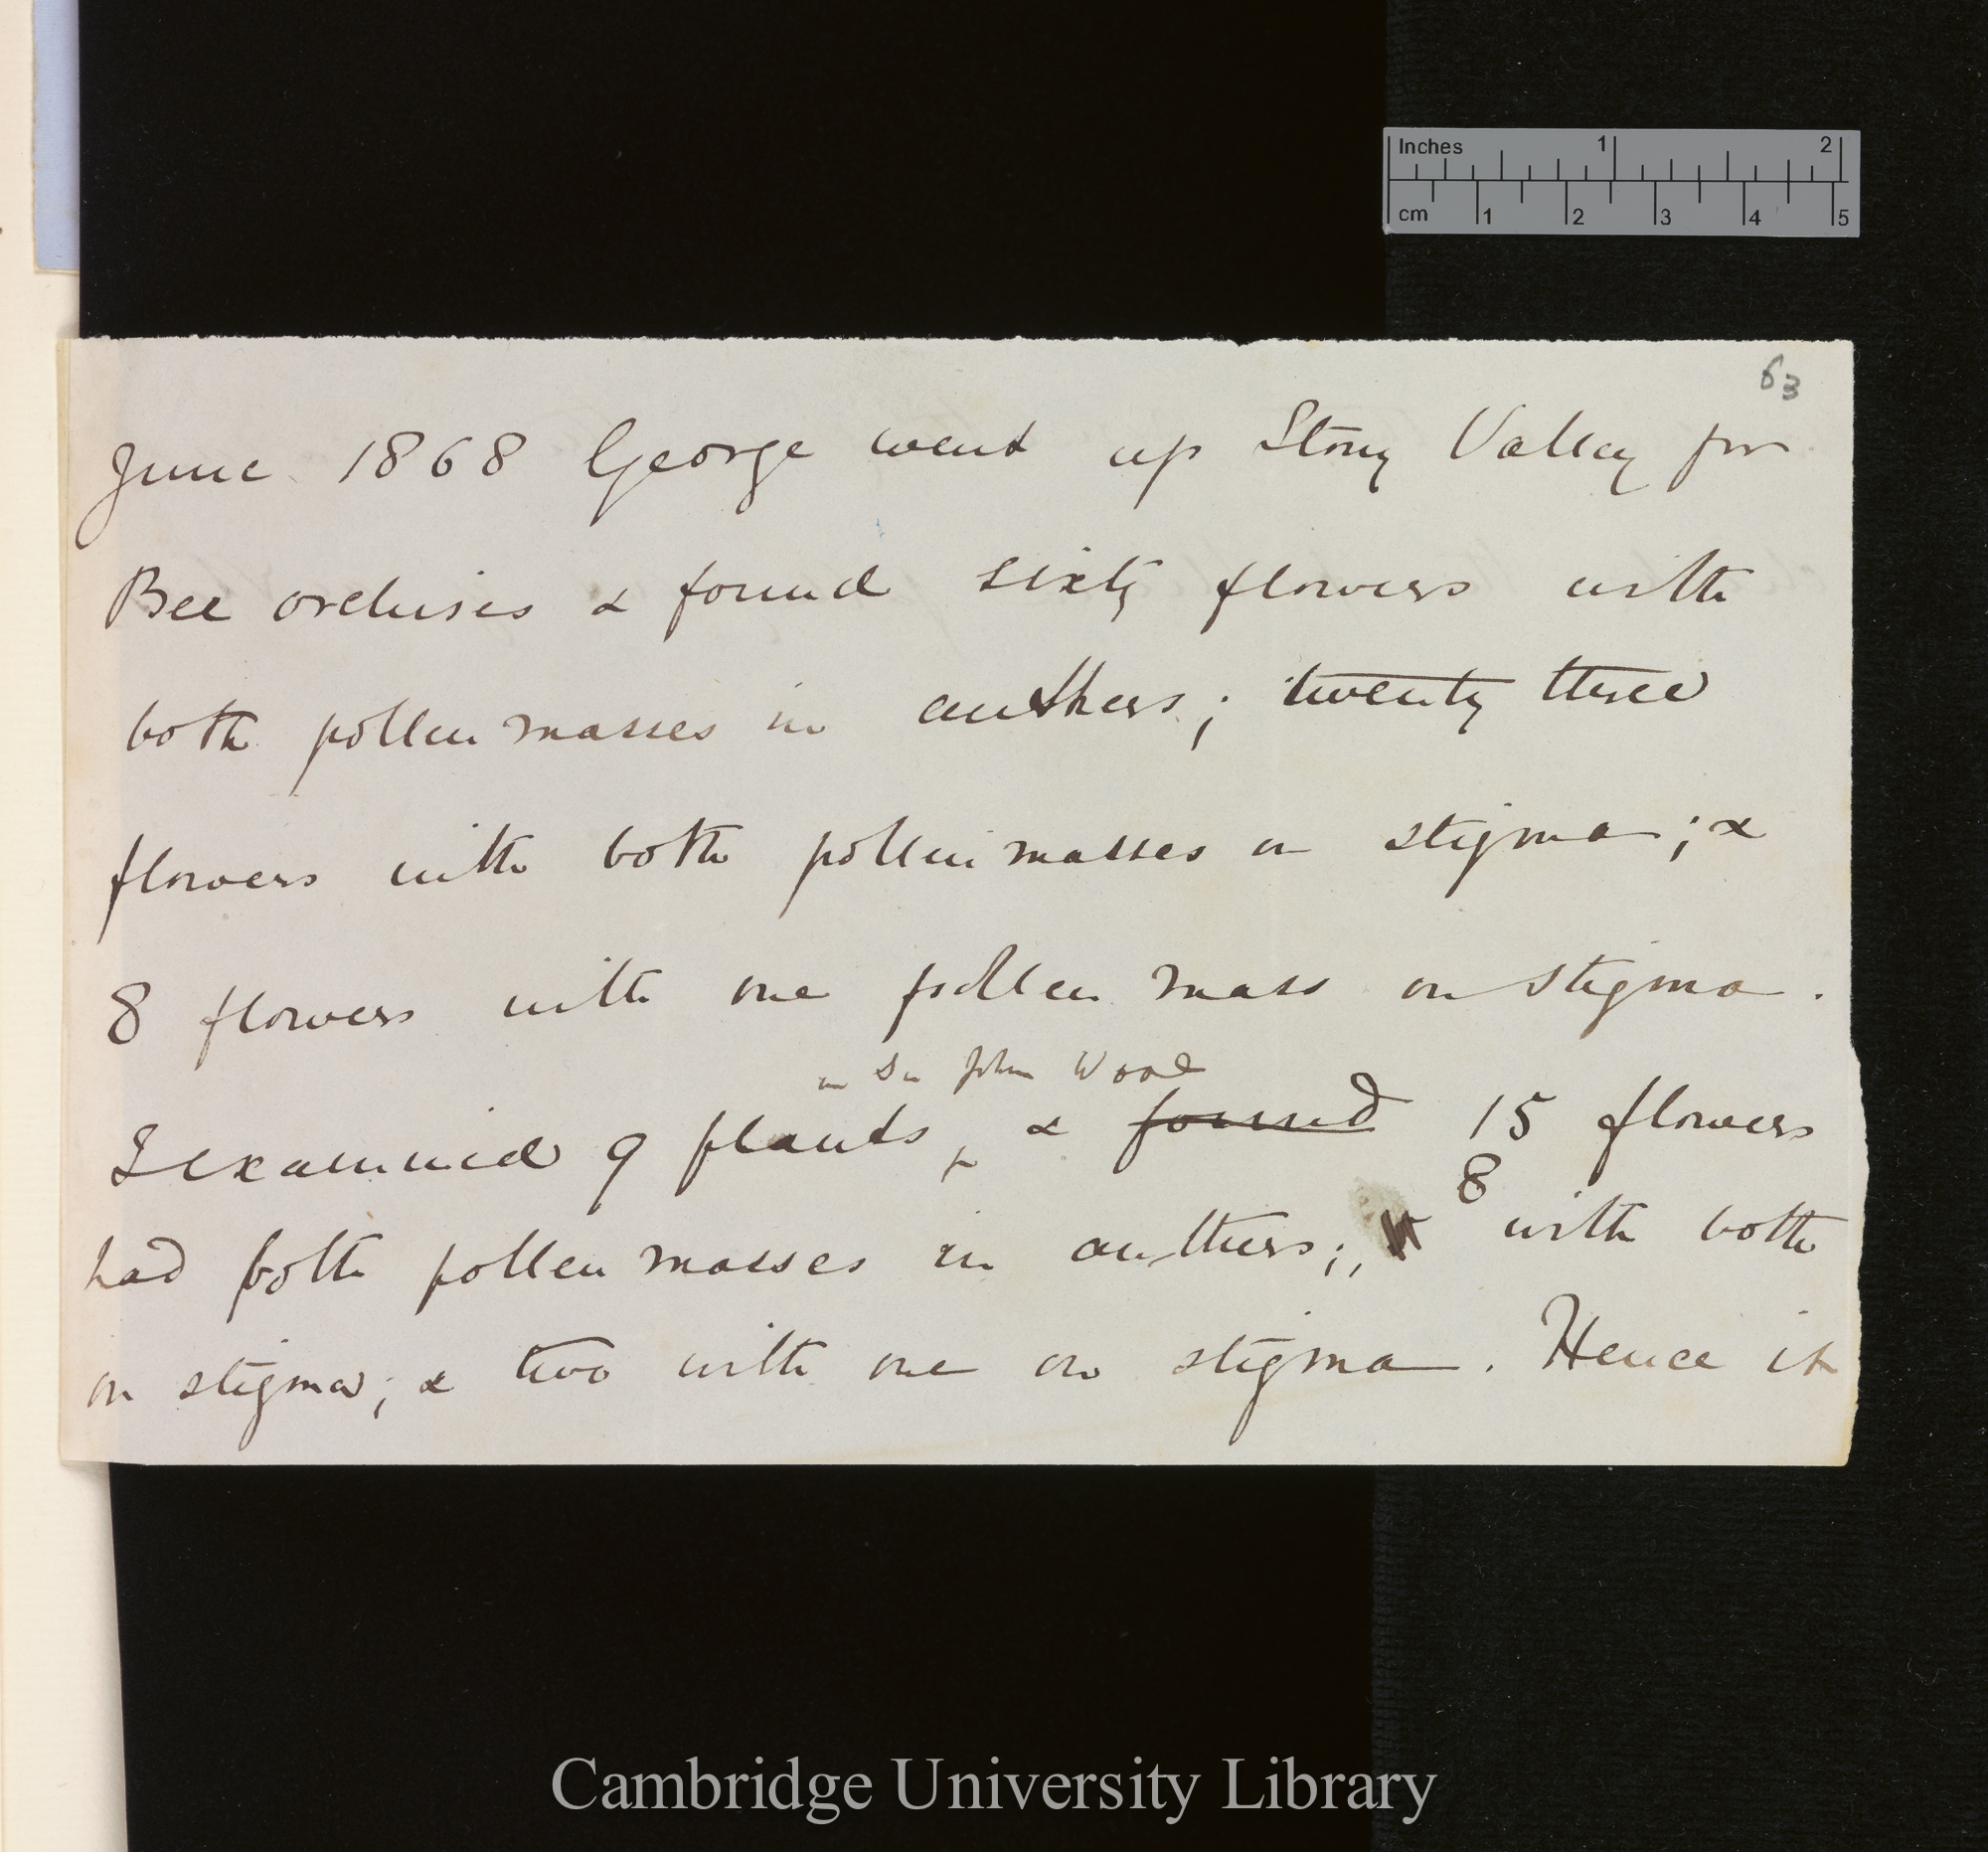 Inches 1 2
cm 1 2 3 4 5
63
June 1868 George went up Stony Valley for
Bee orchises & found sixty flowers with
both pollen masses in anthers; twenty three
flowers with both pollen masses on stigma; &
8 flowers with one pollen mass on stigma.
in Sir John Wood
I examined 9 plants, & found 15 flowers
had both pollen masses in anthers; 8 with both
on stigma; & two with one on stigma. Hence it
Cambridge University Library